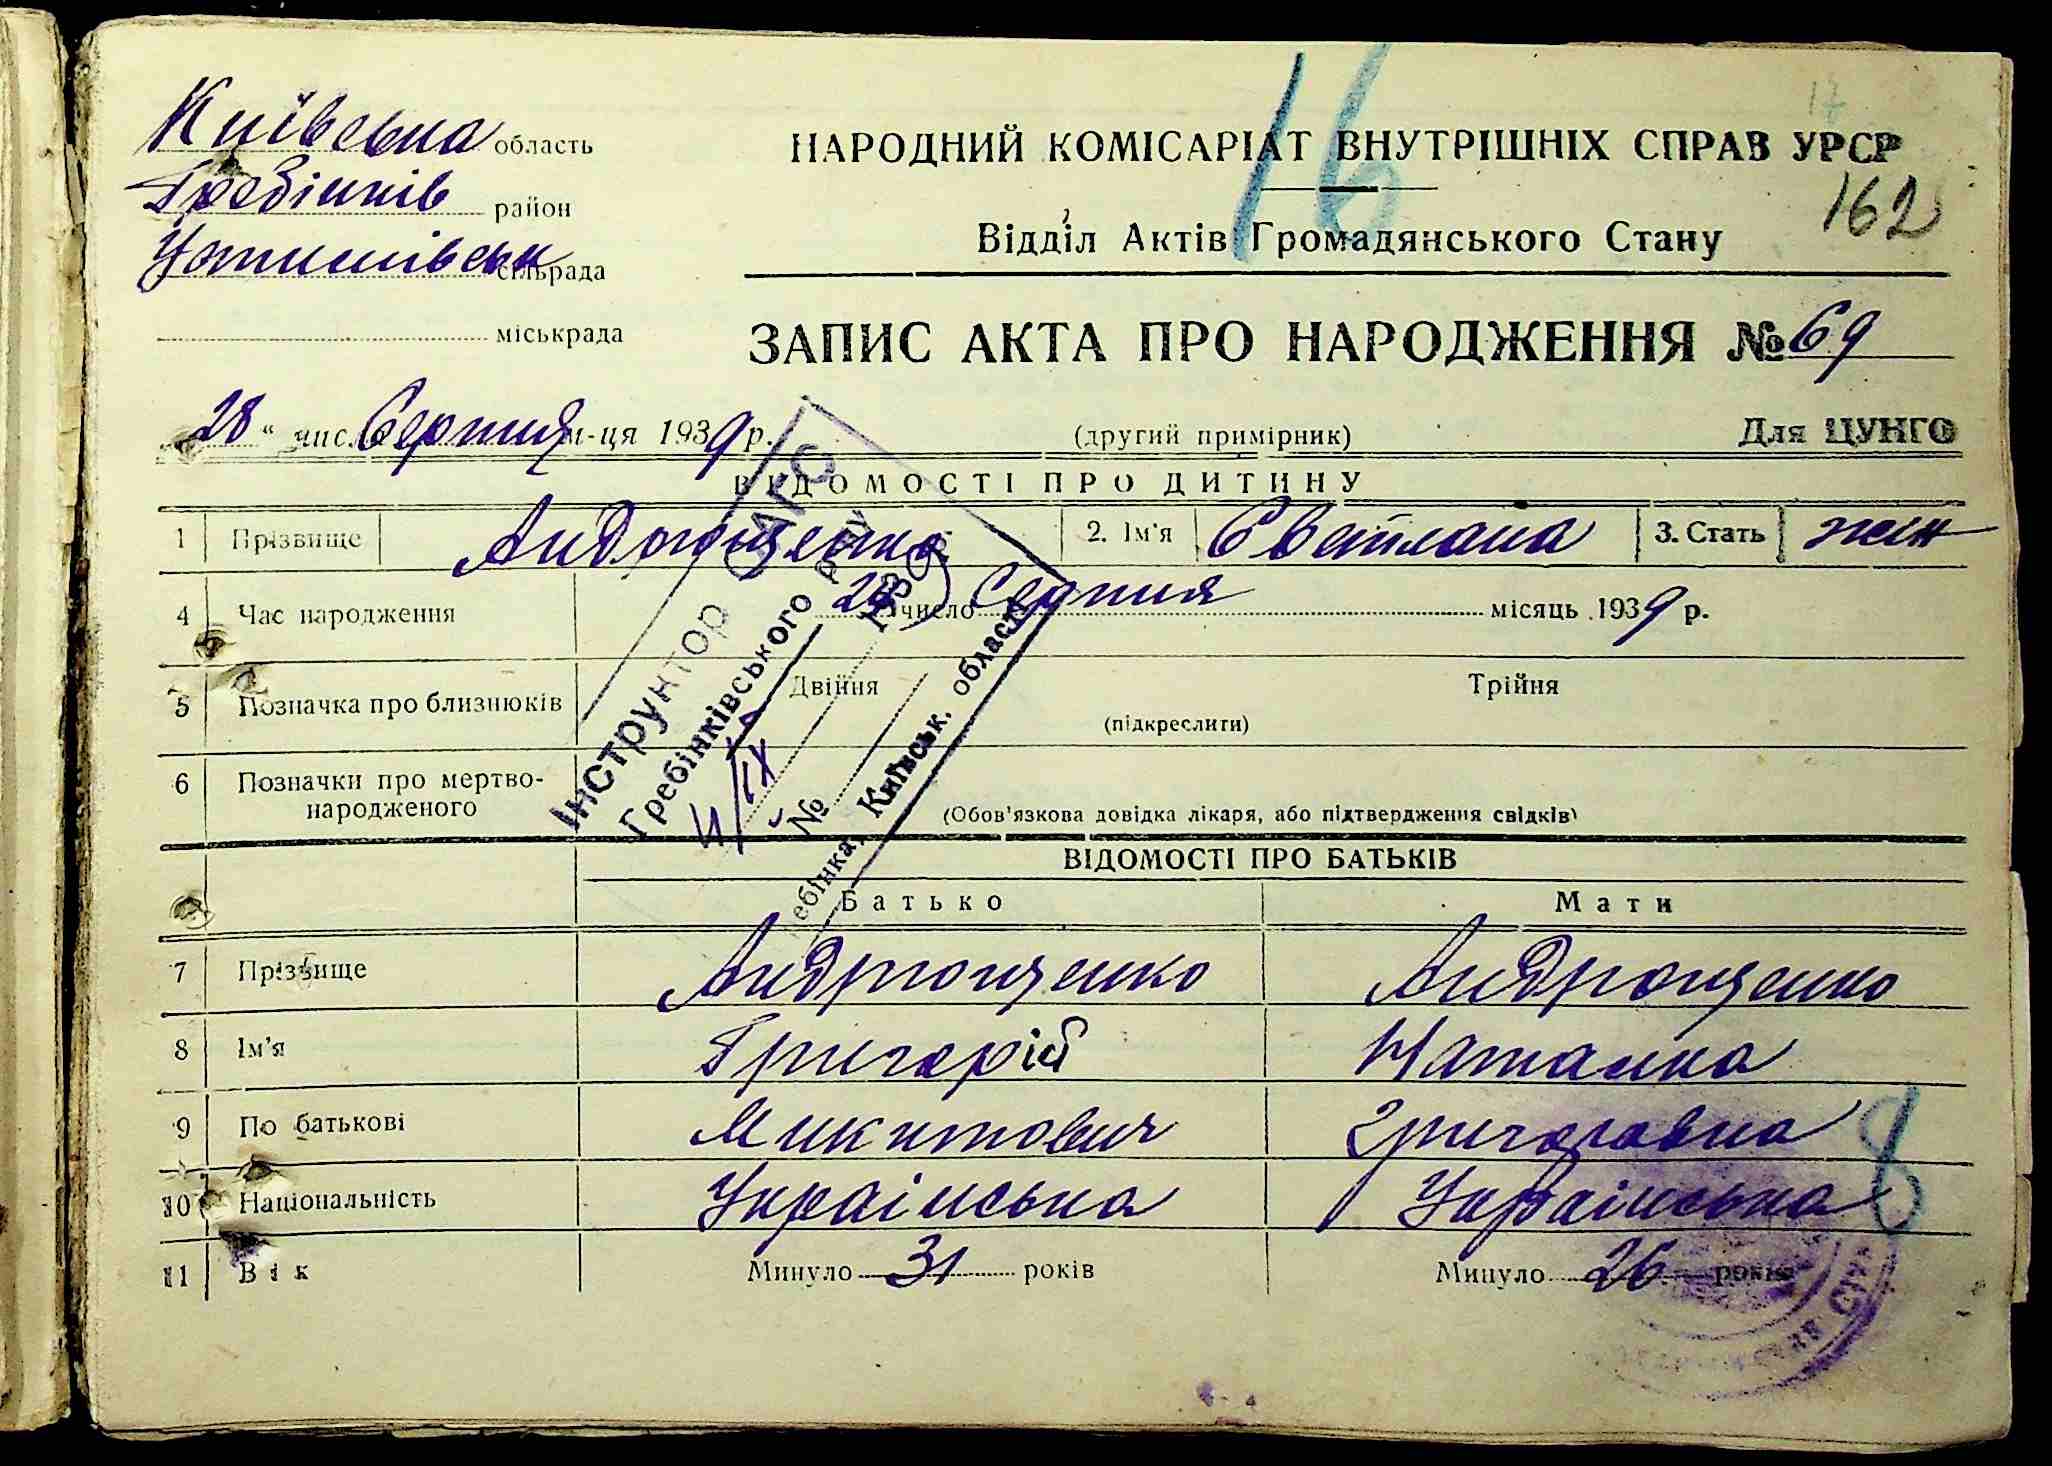 17
16
Київська область
НАРОДНИЙ КОМІСАРІАТ ВНУТРІШНІХ СПРАВ УРСР
Гребінків район
162
Відділ Актів Громадянського Стану
сільрада
міськрада
ЗАПИС АКТА ПРО НАРОДЖЕННЯ № 69
28 " число Серпня м-ця 1939 р.
(другий примірник)
Для ЦУНГО
ВІДОМОСТІ ПРО ДИТИНУ
1 Прізвище Андрющенко 2. Ім'я Светлана 3. Стать жін
4 Час народження число Серпня місяць 1939 р.
5 Позначка про близнюків Двійня Трійня
(підкреслити)
6 Позначки про мертво-
народженого
(Обов'язкова довідка лікаря, або підтвердження свідків)
Інструктор ЗАГС
Гребінківського
11/IX 1939 р.
№
Київськ. області
ВІДОМОСТІ ПРО БАТЬКІВ
Батько Мати
7 Прізвище Андрющенко Андрющенко
8 Ім'я Григорій Наталка
9 По батькові Микитович Григоровна
10 Національність Українська Українська
8
11 Вік Минуло 31 років Минуло 26 років